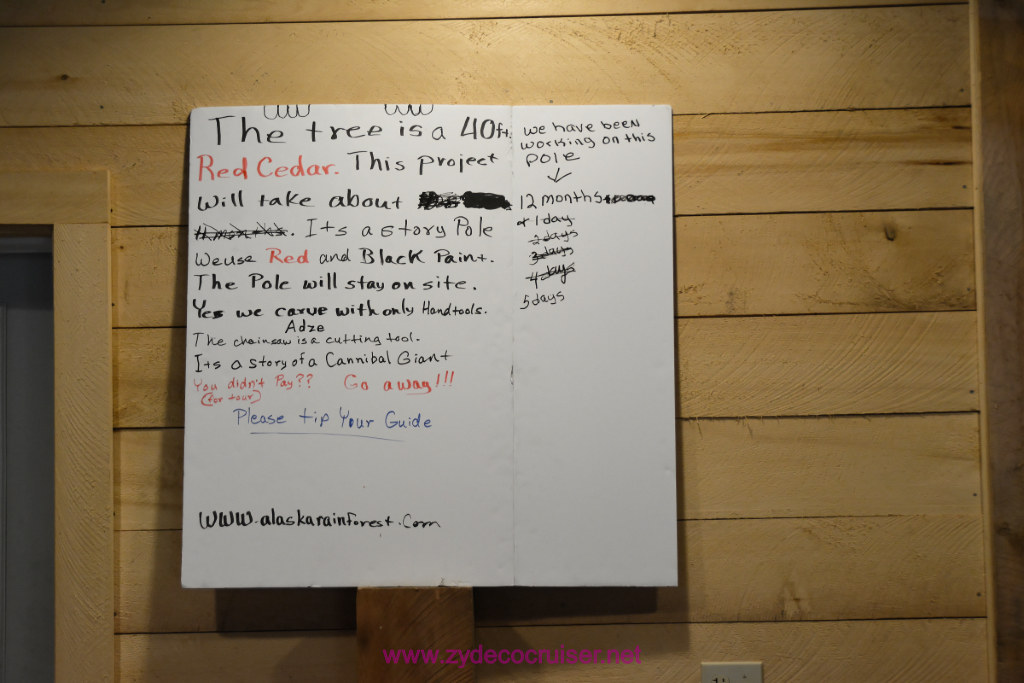 The tree is a 40ft.
Red Cedar. This project
will take about
. Its a story Pole
We use Red and Black Paint.
The Pole will stay on site.
Yes we carve with only Handtools.
Adze
The chainsaw is a cutting tool.
Its a story of a Cannibal Giant
You didn't Pay?? Go away!!!
(for tour)
Please tip Your Guide
www.alaskarainforest.com
we have been
working on this
pole
↓
12 months
+ 1 day
2 days
3 days
4 days
5 days
www.zydecocruiser.net